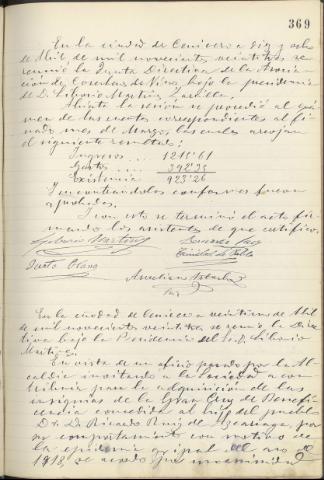 369
En la ciudad de Cenicero a diez y ocho
de Abril de mil novecientos veintitres se
reunió la Junta Directiva de la Asocia-
ción de Cosecheros de Vino, bajo la presidencia
de D. Martínez
Abierta la sesión se procedió al exá-
men de las cuentas correspondientes al fi-
nado mes de Marzo, las cuales arrojan
el siguiente resultado:
Ingresos . . . 1215'61
Gastos . . . 292'35
Existencia 923'26
Y encontrandolas conformes fueron
aprobadas.
Y con esto se terminó el acto fir-
mando los asistentes de que certifico.
Martínez
Justo Olano
En la ciudad de Cenicero a veintiuno de Abril
de mil novecientos veintitres se reunió la Direc-
tiva bajo la Presidencia del Sr. D.
Martínez
En vista de un oficio pasado por la Al-
caldía invitando a la Sociedad a con-
tribuir para la adquisición de las
insignias de la Gran Cruz de Benefi-
cencia concedida al hijo del pueblo
D. Ricardo Ruiz de Azcarraga, por
su comportamiento con motivo de
la epidemia gripal del año de
1918, se acordó por unanimidad